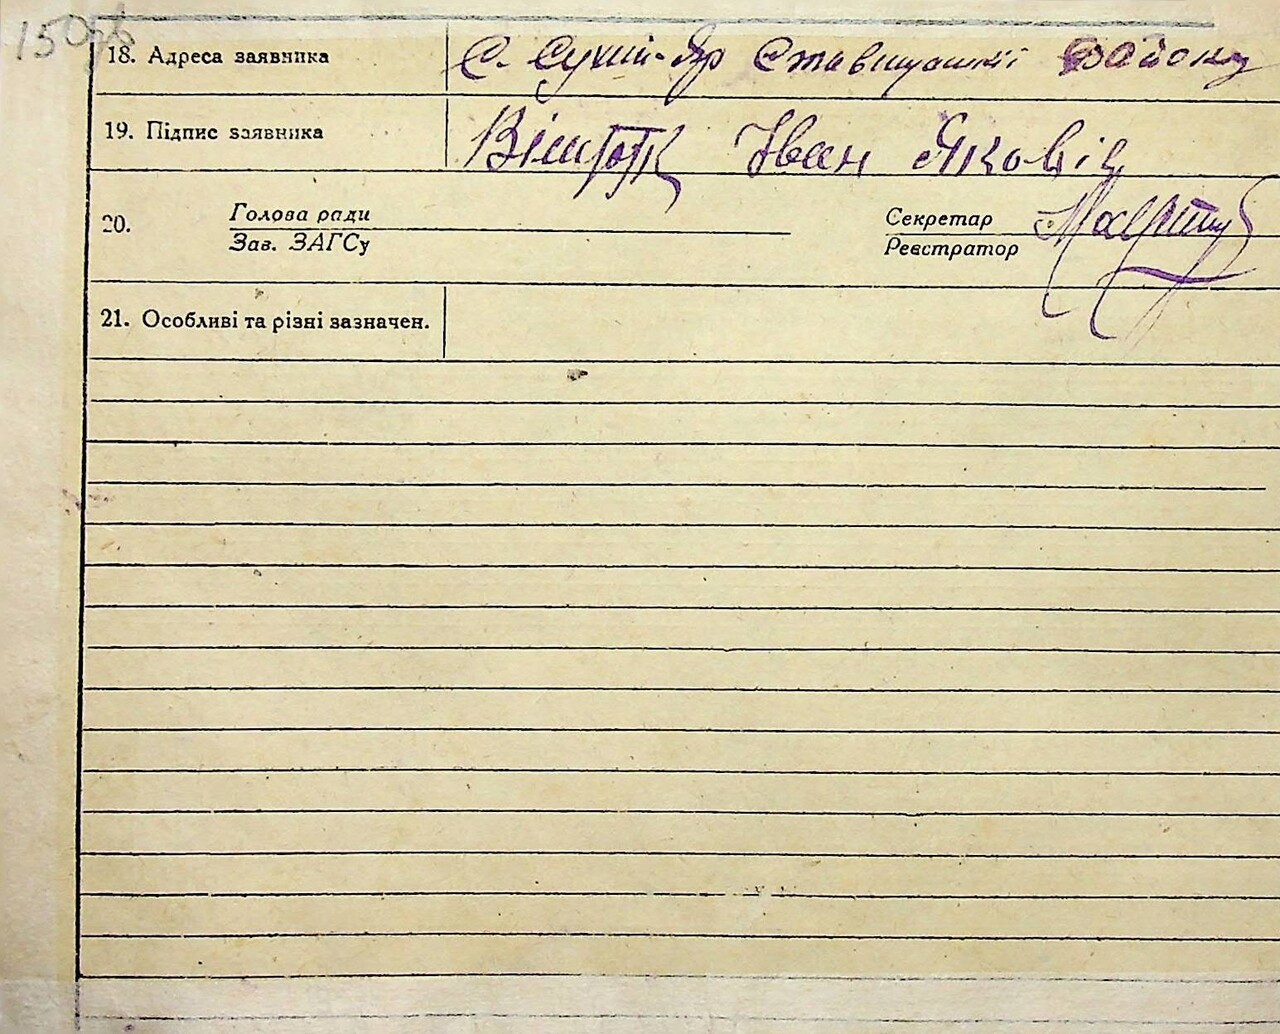 18. Адреса заявника С. Сухий-Яр Ставищанскі Району
19. Підпис заявника Іван Яковіч
20. Голова ради Секретар
Зав. ЗАГСу Реєстратор
21. Особливі та різні зазначен.